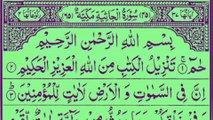 (٤٥) سُوْرَةُ الْجَاثِيَةِ مَكِّيَّةٌ (٦٥)
بِسْمِ اللّٰهِ الرَّحْمٰنِ الرَّحِيْمِ
حٰمٓ ۚ تَنْزِيْلُ الْكِتٰبِ مِنَ اللّٰهِ الْعَزِيْزِ الْحَكِيْمِ
اِنَّ فِى السَّمٰوٰتِ وَ الْاَرْضِ لَاٰيٰتٍ لِّلْمُؤْمِنِيْنَ